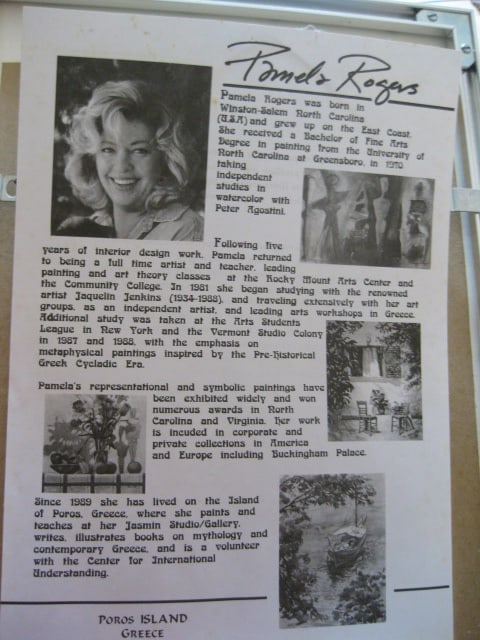 Pamela Rogers
Pamela Rogers was born in
Winston-Salem North Carolina
(U.S.A) and grew up on the East Coast.
She received a Bachelor of Fine Arts
Degree in painting from the University of
North Carolina at Greensboro, in 1970
taking
independent
studies in
watercolor with
Peter Agostini.
Following five
years of interior design work, Pamela returned
to being a full time artist and teacher, leading
painting and art theory classes at the Rocky Mount Arts Center and
the Community College. In 1981 she began studying with the renowned
artist Jaquelin Jenkins (1934-1988), and traveling extensively with her art
groups, as an independent artist, and leading arts workshops in Greece.
Additional study was taken at the Arts Students
League in New York and the Vermont Studio Colony
in 1987 and 1988, with the emphasis on
metaphysical paintings inspired by the Pre-Historical
Greek Cycladic Era.
Pamela's representational and symbolic paintings have
been exhibited widely and won
numerous awards in North
Carolina and Virginia. Her work
is incuded in corporate and
private collections in America
and Europe including Buckingham Palace.
Since 1989 she has lived on the Island
of Poros, Greece, where she paints and
teaches at her Jasmin Studio/Gallery,
writes, illustrates books on mythology and
contemporary Greece, and is a volunteer
with the Center for International
Understanding.
POROS ISLAND
GREECE